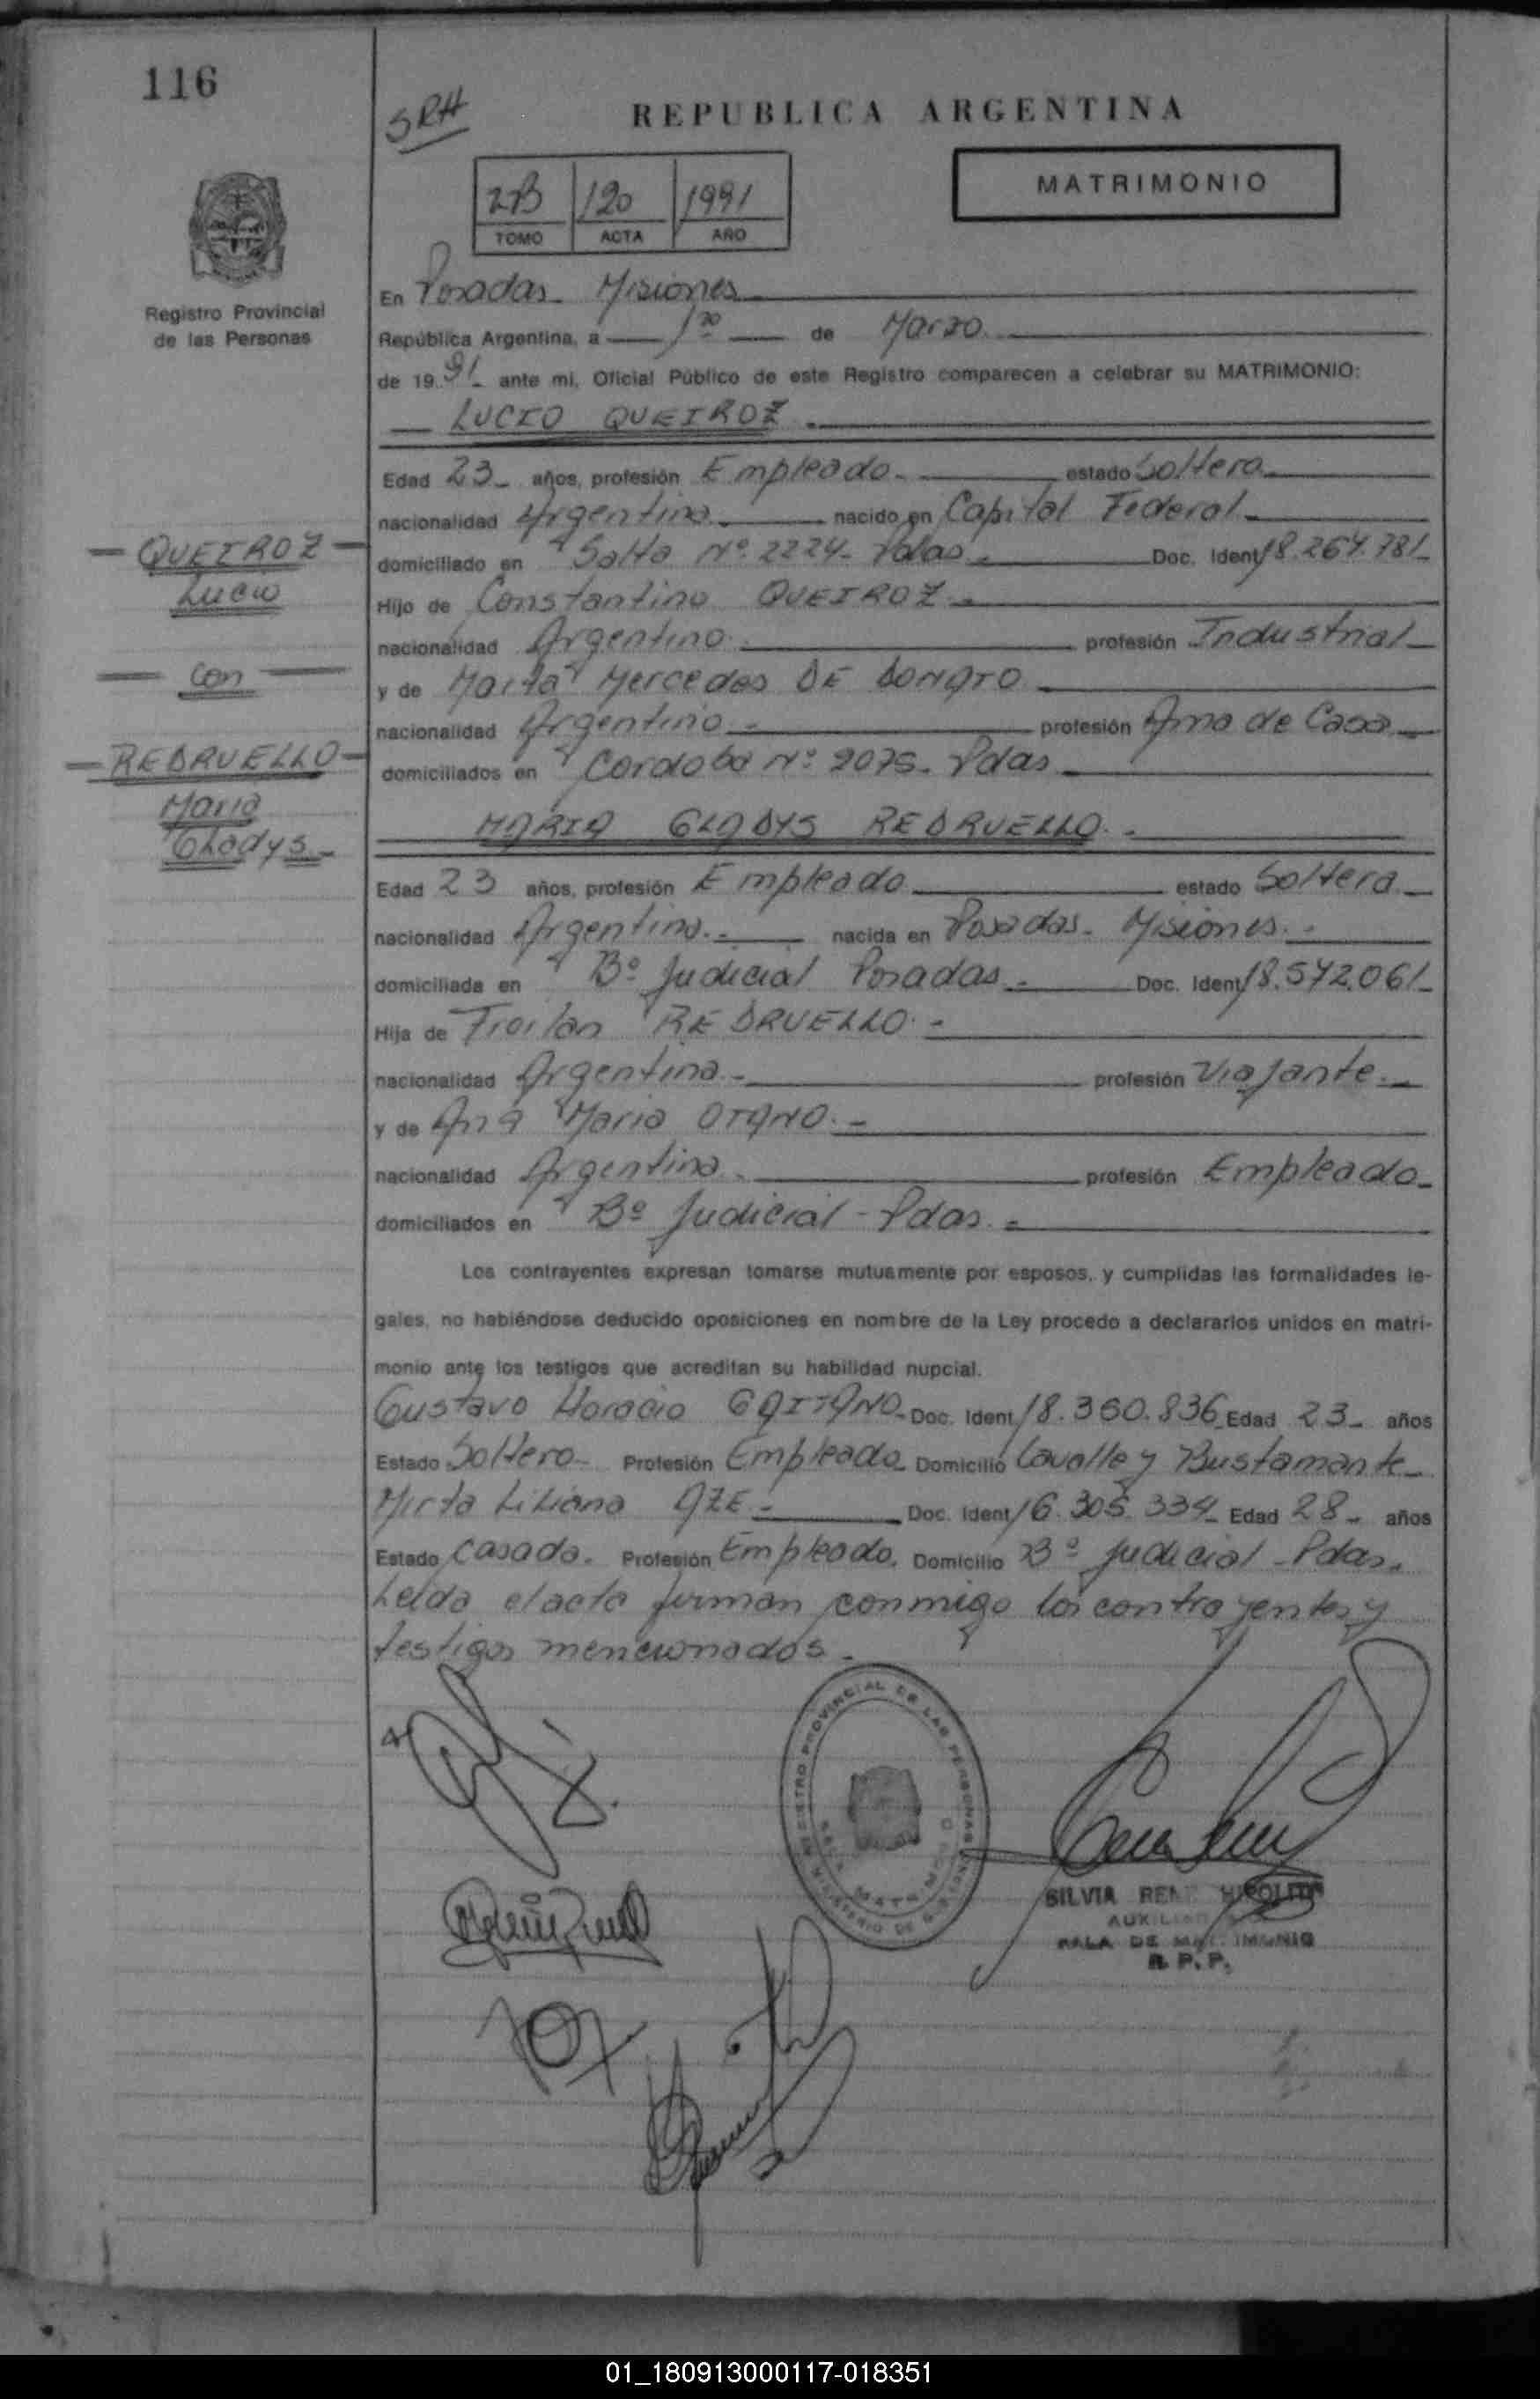 116
SRH
REPUBLICA ARGENTINA
2B 120 1991
TOMO ACTA AÑO
MATRIMONIO
Registro Provincial
de las Personas
En Posadas Misiones
República Argentina, a 1ro de Marzo
de 1991 ante mi, Oficial Público de este Registro comparecen a celebrar su MATRIMONIO:
LUCIO QUEIROZ
Edad 23 años, profesión Empleado estado Soltero
nacionalidad Argentino nacido en Capital Federal
domiciliado en Salta Nº 2224 Pdas Doc. Ident 18.264.781
Hijo de Constantino QUEIROZ
nacionalidad Argentino profesión Industrial
y de Marta Mercedes DE DONATO
nacionalidad Argentina profesión Ama de Casa
domiciliados en Cordoba Nº 2075 Pdas
QUEIROZ
Lucio
con
REDRUELLO
Maria
Gladys
MARIA GLADYS REDRUELLO
Edad 23 años, profesión Empleada estado Soltera
nacionalidad Argentina nacida en Posadas Misiones
domiciliada en Bº Judicial Posadas Doc. Ident 18.572.061
Hija de Froilan REDRUELLO
nacionalidad Argentino profesión Viajante
y de Ana Maria OTAÑO
nacionalidad Argentina profesión Empleada
domiciliados en Bº Judicial - Pdas
Los contrayentes expresan tomarse mutuamente por esposos, y cumplidas las formalidades le-
gales, no habiéndose deducido oposiciones en nombre de la Ley procedo a declararlos unidos en matri-
monio ante los testigos que acreditan su habilidad nupcial.
Gustavo Horacio GAITANO Doc. Ident 18.360.836 Edad 23 años
Estado Soltero Profesión Empleado Domicilio Lavalle y Bustamante
Mirta Liliana AZE Doc. Ident 16.305.334 Edad 28 años
Estado Casada Profesión Empleada Domicilio Bº Judicial - Pdas
Leida el acta firman conmigo los contrayentes y
testigos mencionados
REGISTRO PROVINCIAL DE LAS PERSONAS
MINISTERIO DE GOBIERNO
SALA MATRIMONIO
SILVIA RENE HIPOLITO
AUXILIAR
SALA DE MATRIMONIO
R. P. P.
01_180913000117-018351